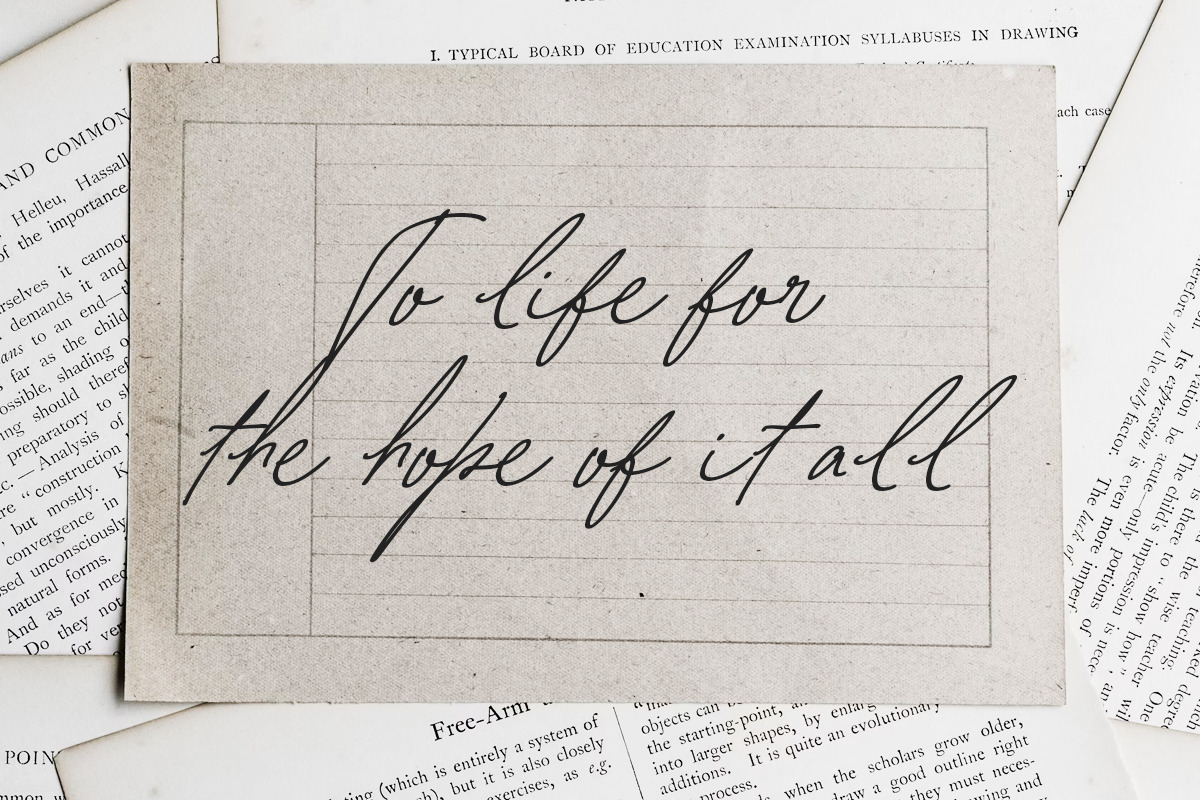 I. TYPICAL BOARD OF EDUCATION EXAMINATION SYLLABUSES IN DRAWING
ach case
AND COMMON
Helleu, Hassall
of the importance
rselves it cannot
demands it and
ans to an end—th
far as the child
ossible, shading o
ing should theref
preparatory to s
c.—Analysis of
re "construction
, but mostly. K
convergence in
sed unconsciously
natural forms.
And as for mec
Do they not
for ver
To life for
the hope of it all
herefore not the only factor.
Its expression is even more imperf
The lack of
be acute—only portions of
The child's impression is nece
there to "show how"
the wise teacher wil
teaching. One
ked degre
POIN
mmon w
Free-Arm
ting (which is entirely a system of
h), but it is also closely
exercises, as e.g.
objects can b
the starting-point, a
into larger shapes, by enlarg
additions. It is quite an evolutionary
process.
when the scholars grow older,
draw a good outline right
they must neces-
wing and